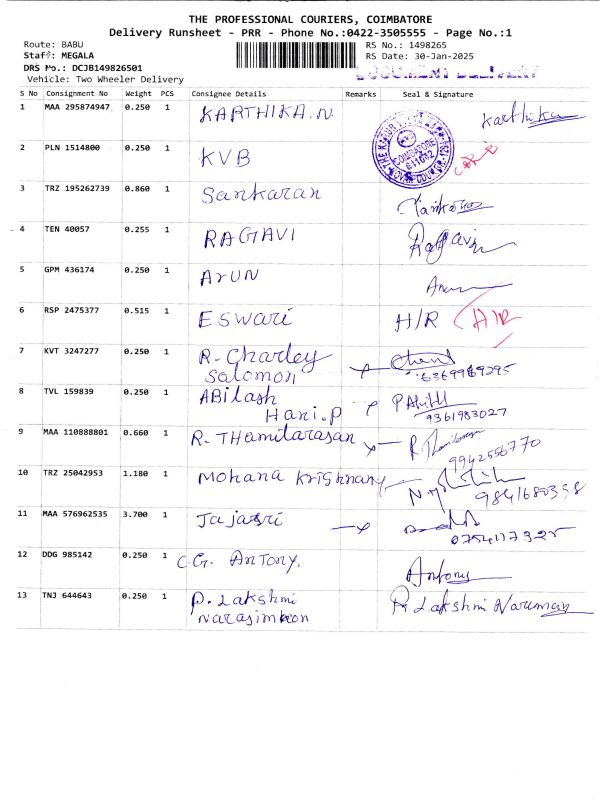 THE PROFESSIONAL COURIERS, COIMBATORE
Delivery Runsheet - PRR - Phone No.:0422-3505555 - Page No.:1
Route: BABU RS No.: 1498265
Staff: MEGALA RS Date: 30-Jan-2025
DRS No.: DCJB149826501 DOCUMENT DELIVERY
Vehicle: Two Wheeler Delivery
S No Consignment No Weight PCS Consignee Details Remarks Seal & Signature
1 MAA 295874947 0.250 1 KARTHIKA.N Karthika
2 PLN 1514800 0.250 1 KVB COIMBATORE 641002
3 TRZ 195262739 0.860 1 Sankaran Sankaran
4 TEN 40057 0.255 1 RAGAVI Ragavi
5 GPM 436174 0.250 1 ArUN Arun
6 RSP 2475377 0.515 1 ESWARi H/R H/R
7 KVT 3247277 0.250 1 R. Charley
Salomon 6369969295
8 TVL 159839 0.250 1 ABilash
Hari.P 9361983027
9 MAA 110888801 0.660 1 R. THamilarasan 9942556770
10 TRZ 25042953 1.180 1 Mohana Krishnan 9841680338
11 MAA 576962535 3.700 1 Jajasri
12 DDG 985142 0.250 1 C.G. ANTONY, Antony
13 TNJ 644643 0.250 1 P. Lakshmi P. Lakshmi